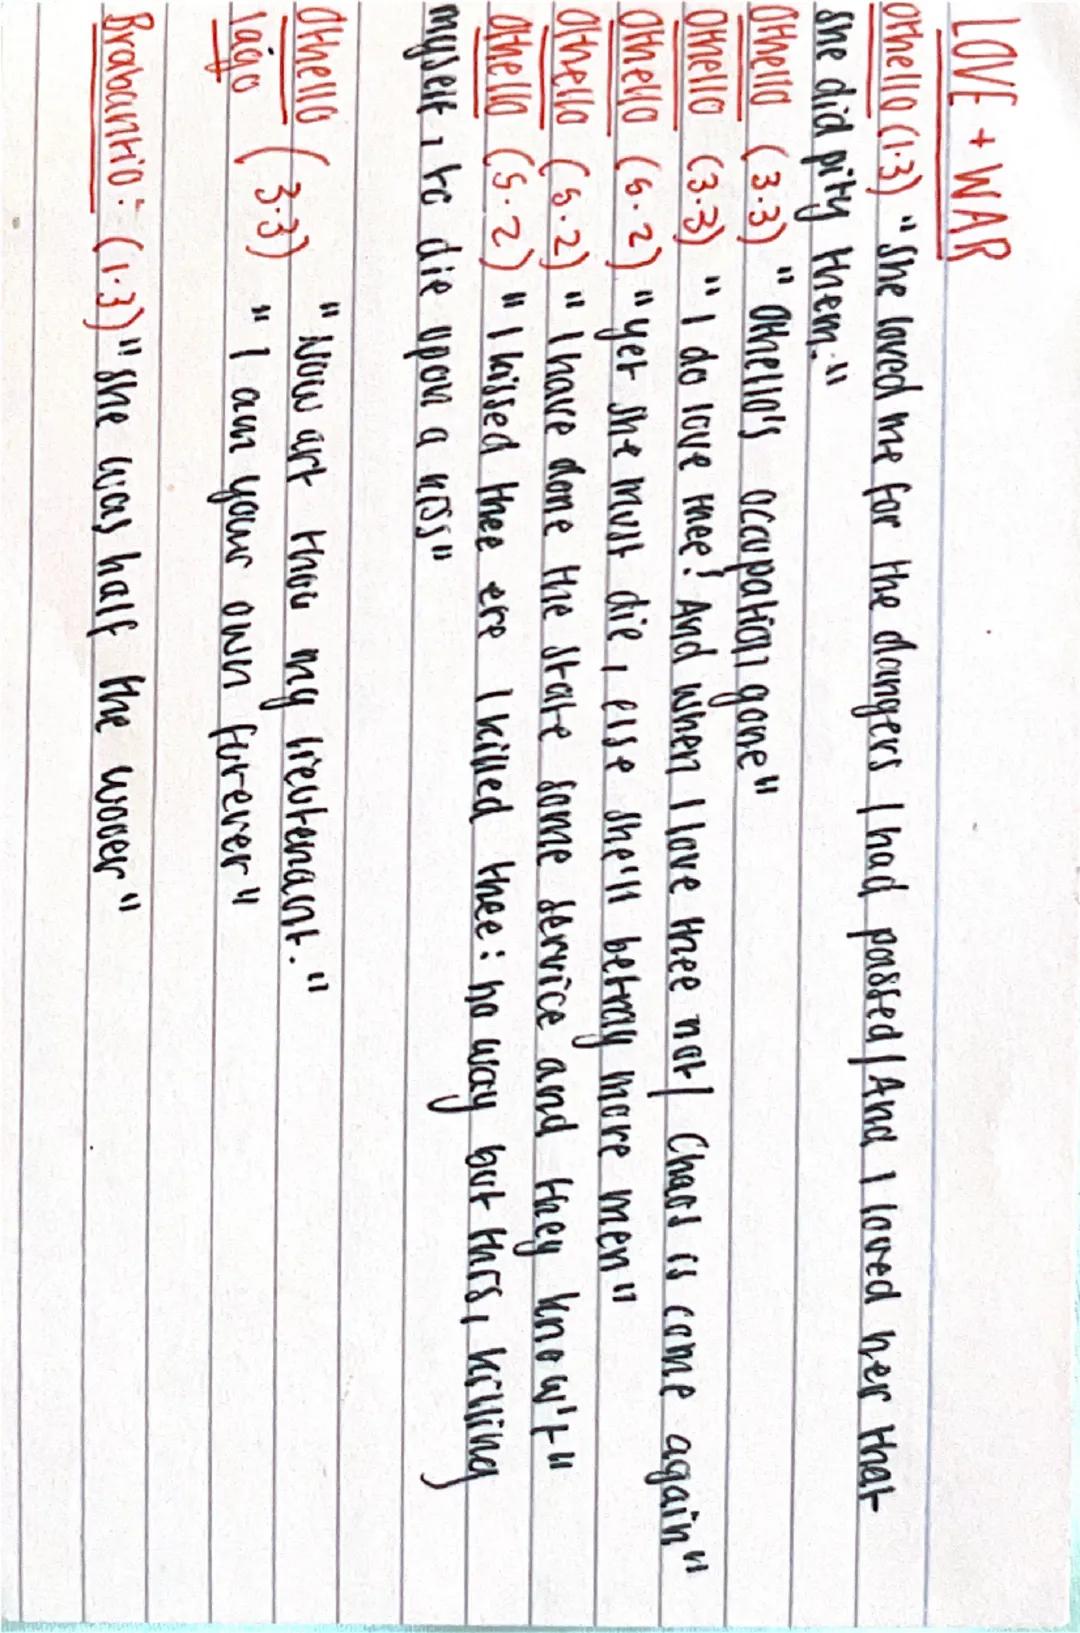 LOVE + WAR
Othello (1.3) "she loved me for the dangers I had passed/And I loved her that
she did pity them."
Othello (3.3) "Othello's occupation gone"
Othello (3.3) "I do love thee! And when I love thee not/ Chaos is come again"
Othello (5.2) "yet she must die, else she'll betray more men"
Othello (5.2) "I have done the state some service and they know't"
Othello (5.2) "I kissed thee ere I killed thee: no way but this, killing
myself, to die upon a kiss"
Othello ( 3.3) "Now art thou my lieutenant."
Iago "I am your own forever"
Brabantio:- (1.3) "she was half the wooer"